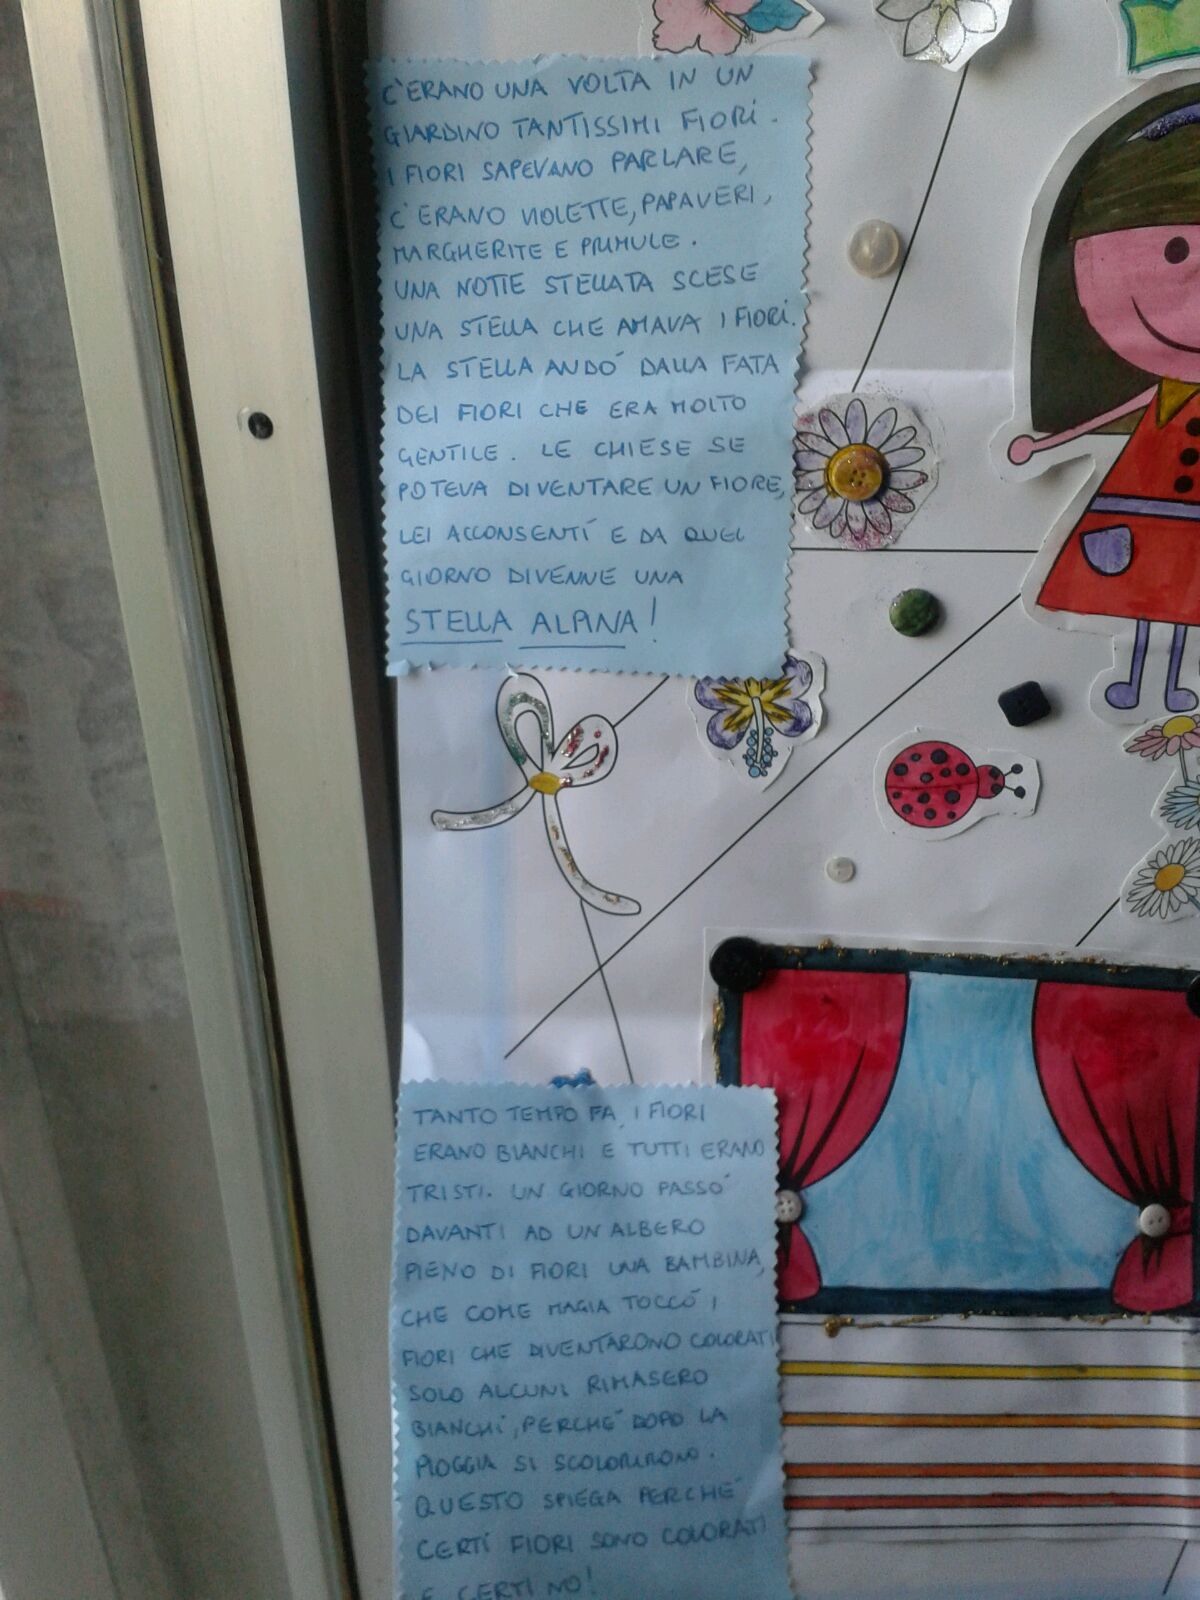 C'ERANO UNA VOLTA IN UN
GIARDINO TANTISSIMI FIORI.
I FIORI SAPEVANO PARLARE,
C'ERANO VIOLETTE, PAPAVERI,
MARGHERITE E PRIMULE.
UNA NOTTE STELLATA SCESE
UNA STELLA CHE AMAVA I FIORI.
LA STELLA ANDÓ DALLA FATA
DEI FIORI CHE ERA MOLTO
GENTILE. LE CHIESE SE
POTEVA DIVENTARE UN FIORE,
LEI ACCONSENTÍ E DA QUEL
GIORNO DIVENNE UNA
STELLA ALPINA!
TANTO TEMPO FA, I FIORI
ERANO BIANCHI E TUTTI ERANO
TRISTI. UN GIORNO PASSÓ
DAVANTI AD UN ALBERO
PIENO DI FIORI UNA BAMBINA,
CHE COME MAGIA TOCCÓ I
FIORI CHE DIVENTARONO COLORATI
SOLO ALCUNI RIMASERO
BIANCHI, PERCHÉ DOPO LA
PIOGGIA SI SCOLORIRONO.
QUESTO SPIEGA PERCHÉ
CERTI FIORI SONO COLORATI
E CERTI NO!